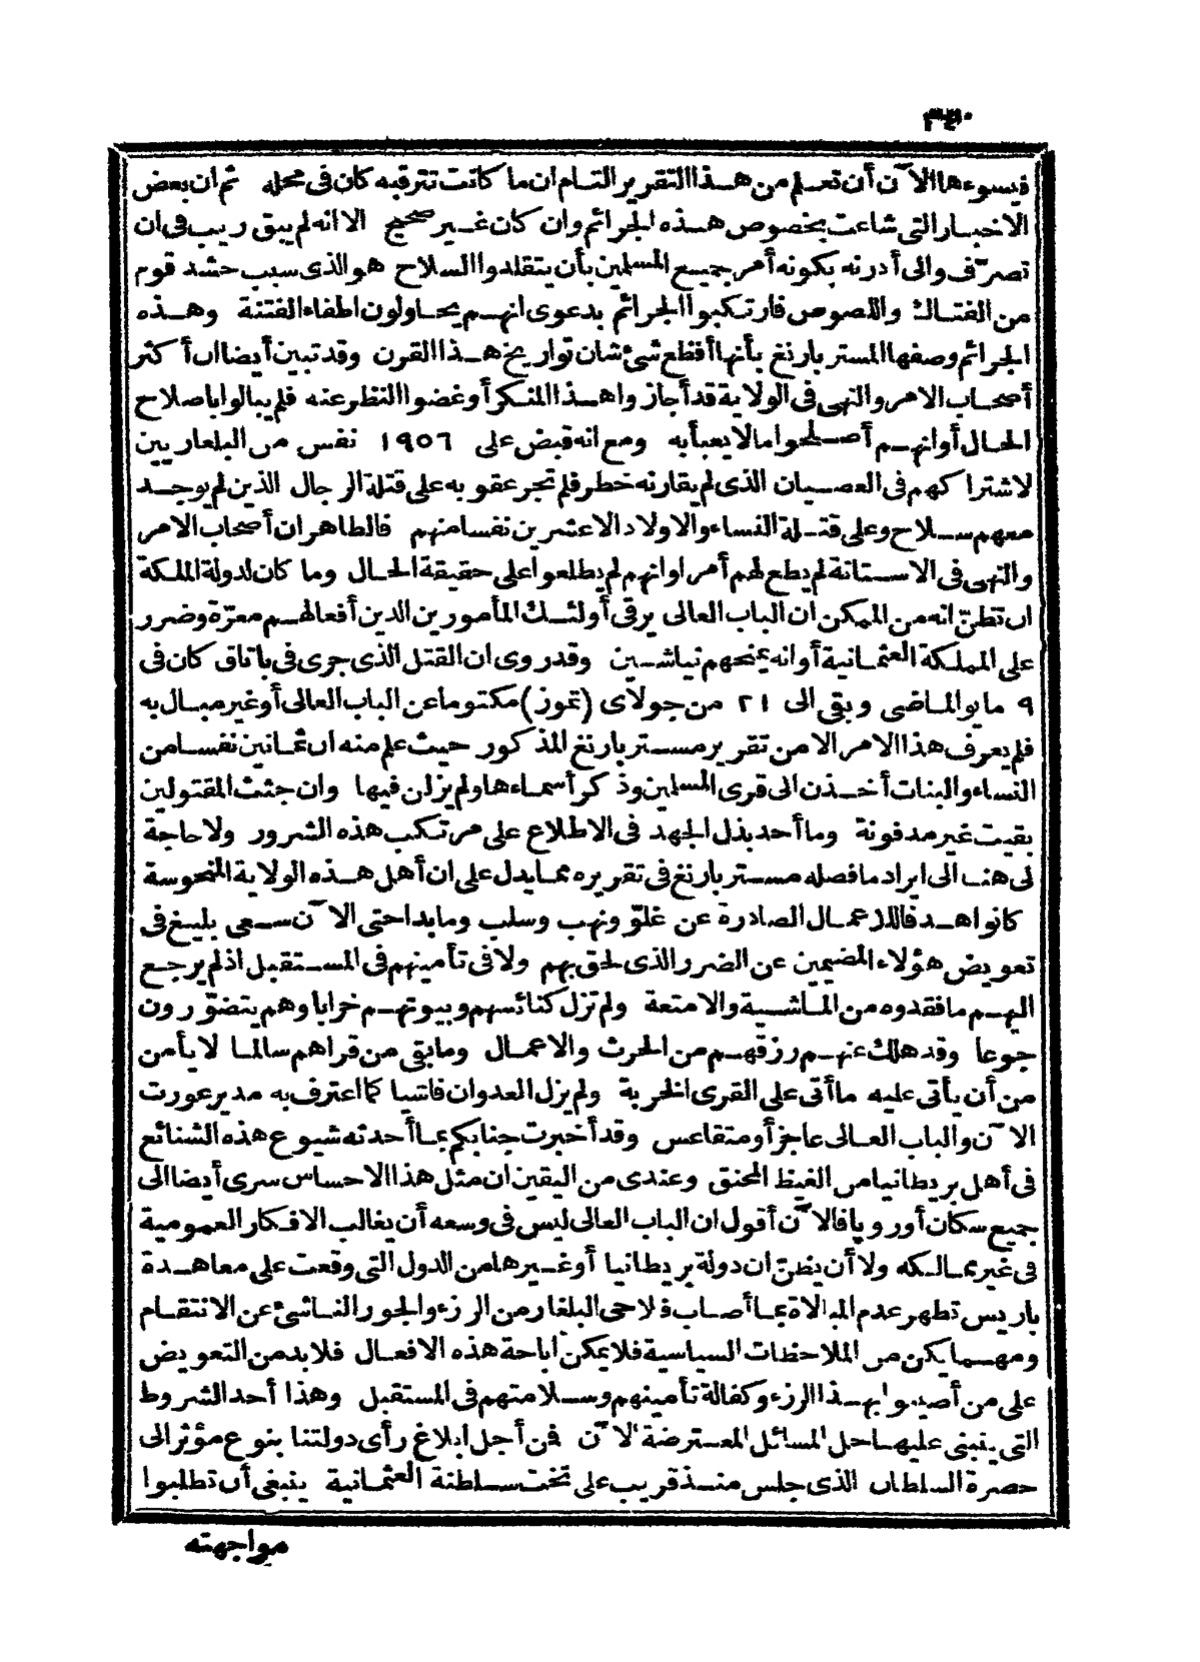 ٣٤٠
فيسوءها الآن أن تعلم من هذا التقرير التام ان ما كانت تترقبه كان فى محله ثم ان بعض
الاخبار التى شاعت بخصوص هذه الجرائم وان كان غير صحيح الا انه لم يبق ريب فى ان
تصرّف والى أدرنه بكونه أمر جميع المسلمين بأن يتقلدوا السلاح هو الذى سبب حشد قوم
من الفتاك واللصوص فارتكبوا الجرائم بدعوى انهم يحاولون اطفاء الفتنة وهذه
الجرائم وصفها المستر بارنغ بأنها أفظع شئ شان تواريخ هذا القرن وقد تبين أيضا ان أكثر
أصحاب الامر والنهى فى الولاية قد أجازوا هذا المنكر أو غضوا النظر عنه فلم يبالوا باصلاح
الحال أو انهم أصلحوا ما لا يعبأ به ومع انه قبض على ١٩٥٦ نفس من البلغاريين
لاشتراكهم فى العصيان الذى لم يقارنه خطر فلم تجر عقوبه على قتلة الرجال الذين لم يوجد
معهم سلاح وعلى قتلة النساء والاولاد الا عشرين نفسا منهم فالظاهر ان أصحاب الامر
والنهى فى الاستانة لم يطع لهم أمر او انهم لم يطلعوا على حقيقة الحال وما كان لدولة الملكة
ان تظنّ انه من الممكن ان الباب العالى يرقى أولئك المأمورين الذين أفعالهم معرّة وضرر
على المملكة العثمانية أو انه يمنحهم نياشين وقد روى ان القتل الذى جرى فى باتاق كان فى
٩ مايو الماضى وبقى الى ٢١ من جولاى (تموز) مكتوما عن الباب العالى أو غير مبال به
فلم يعرف هذا الامر الا من تقرير مستر بارنغ المذكور حيث علم منه ان ثمانين نفسا من
النساء والبنات أخذن الى قرى المسلمين وذكر أسماءها ولم يزلن فيها وان جثث المقتولين
بقيت غير مدفونة وما أحد بذل الجهد فى الاطلاع على مرتكب هذه الشرور ولا حاجة
لى هنا الى ايراد ما فصله مستر بارنغ فى تقريره مما يدل على ان أهل هذه الولاية المنحوسة
كانوا هدفا للاعمال الصادرة عن غلوّ ونهب وسلب وما بدا حتى الآن سعى بليغ فى
تعويض هؤلاء المضيمين عن الضرر الذى لحق بهم ولا فى تأمينهم فى المستقبل اذ لم يرجع
اليهم ما فقدوه من الماشية والامتعة ولم تزل كنائسهم وبيوتهم خرابا وهم يتضوّرون
جوعا وقد هلك عنهم رزقهم من الحرث والاعمال وما بقى من قراهم سالما لا يأمن
من أن يأتى عليه ما أتى على القرى الخربة ولم يزل العدوان فاشيا كما اعترف به مدير عورت
الآن والباب العالى عاجز أو متقاعس وقد أخبرت جنابكم بما أحدثه شيوع هذه الشنائع
فى أهل بريطانيا من الغيظ المحنق وعندى من اليقين ان مثل هذا الاحساس سرى أيضا الى
جميع سكان أوروپا فالآن أقول ان الباب العالى ليس فى وسعه أن يغالب الافكار العمومية
فى غير ممالكه ولا أن يظنّ ان دولة بريطانيا أو غيرها من الدول التى وقعت على معاهدة
باريس تظهر عدم المبالاة بما أصاب فلاحى البلغار من الرزء والجور الناشئ عن الانتقام
ومهما يكن من الملاحظات السياسية فلا يمكن اباحة هذه الافعال فلا بد من التعويض
على من أصيبوا بهذا الرزء وكفالة تأمينهم وسلامتهم فى المستقبل وهذا أحد الشروط
التى ينبنى عليها حل المسائل المعترضة الآن فمن أجل ابلاغ رأى دولتنا بنوع مؤثر الى
حضرة السلطان الذى جلس منذ قريب على تخت سلطنة العثمانية ينبغى أن تطلبوا
مواجهته